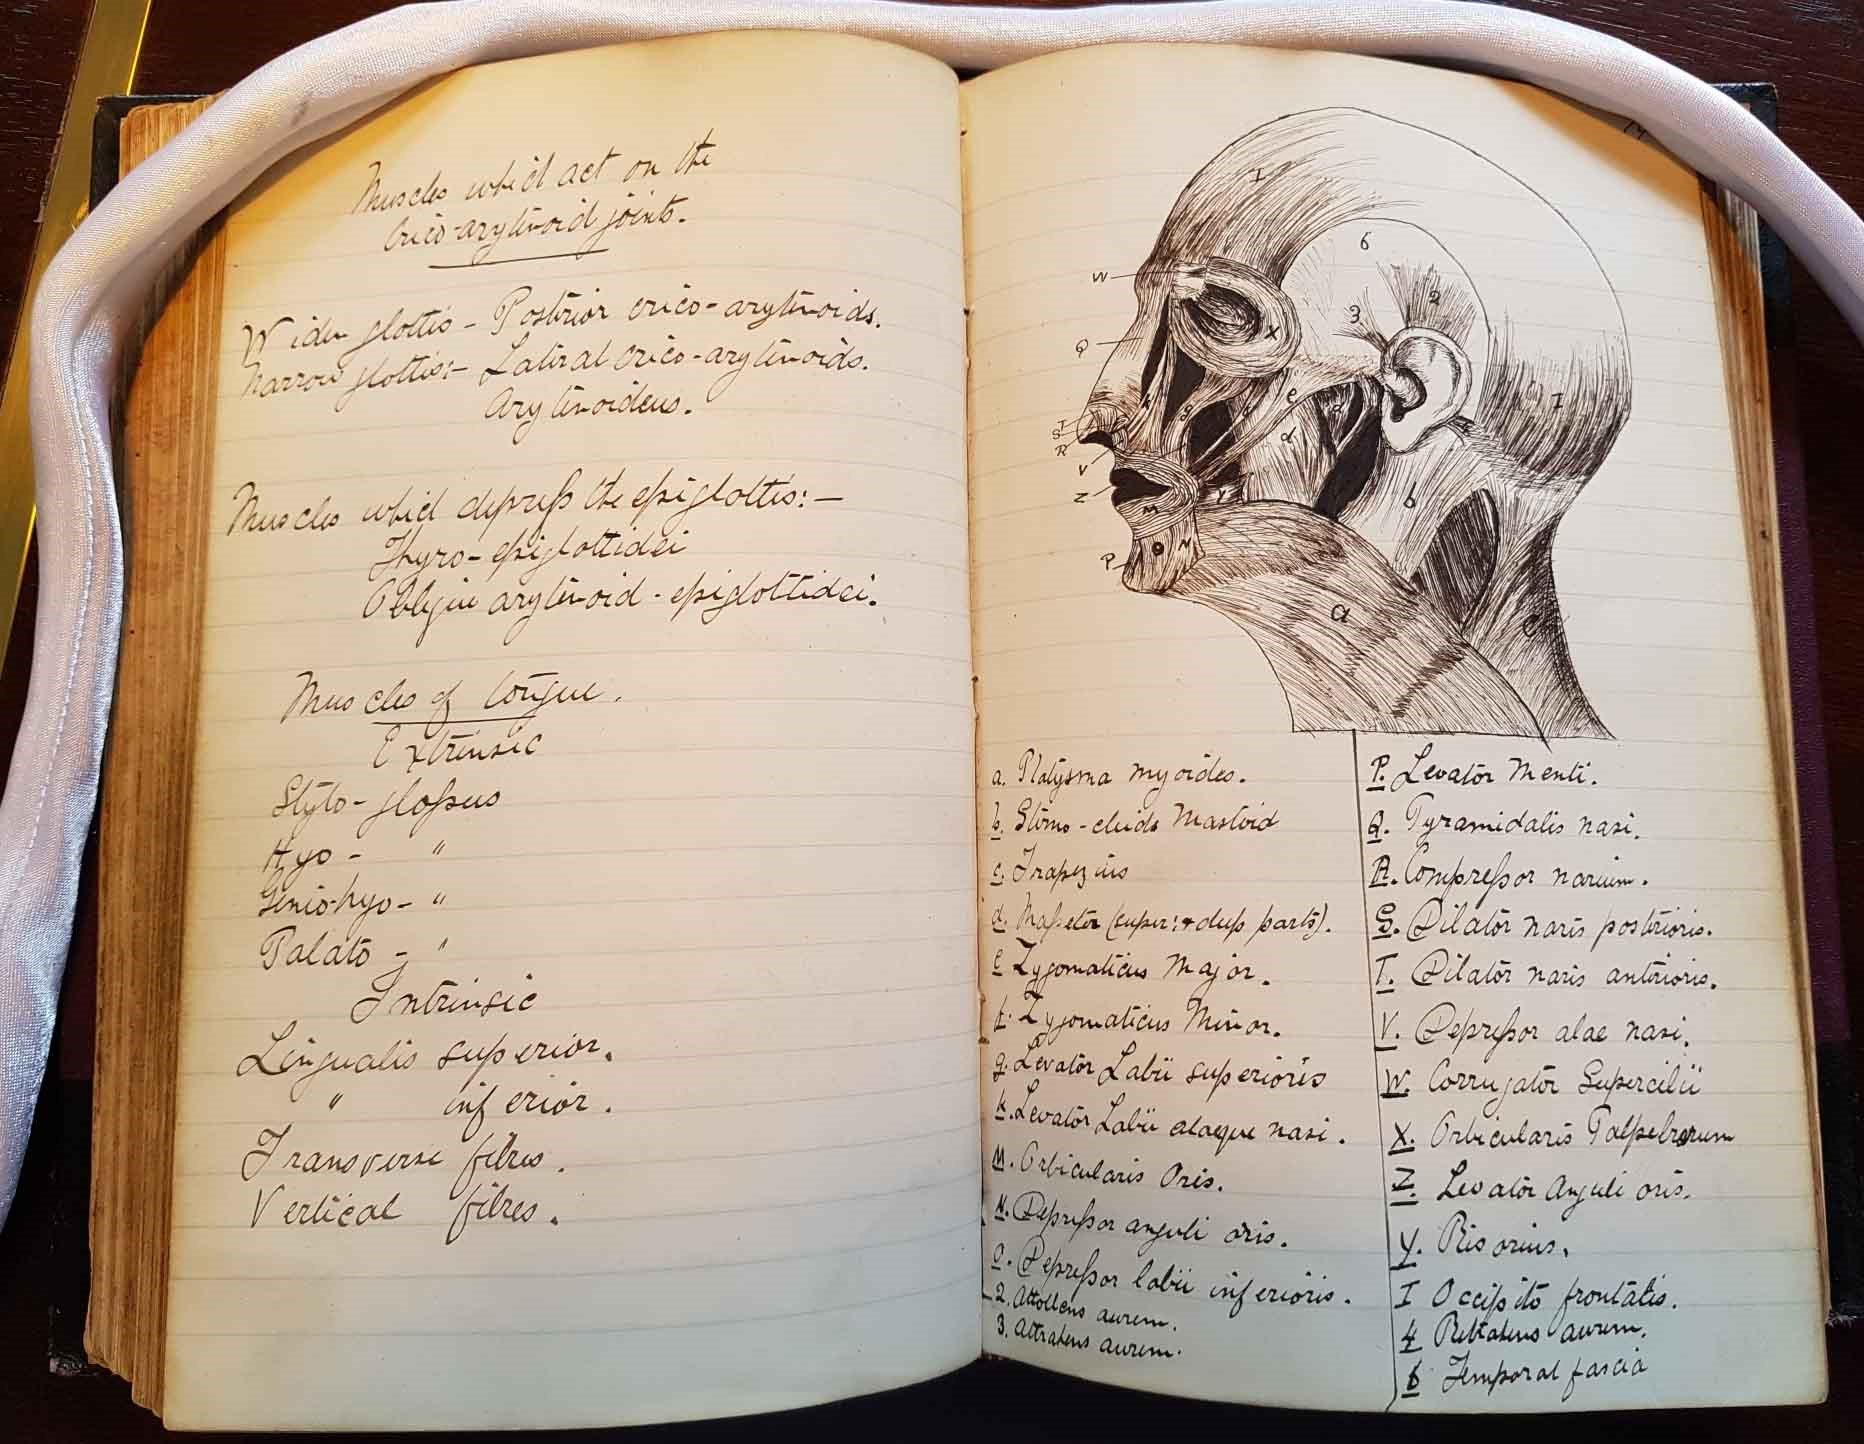 Muscles which act on the
Crico-arytenoid joints.
Widen glottis - Posterior crico-arytenoids.
Narrow glottis:- Lateral crico-arytenoids.
Arytenoideus.
Muscles which depress the epiglottis:-
Thyro-epiglottidei
Oblique arytenoid-epiglottidei.
Muscles of tongue.
Extrinsic
Stylo-glossus
Hyo- "
Genio-hyo- "
Palato- "
Intrinsic
Lingualis superior.
" inferior.
Transverse fibres.
Vertical fibres.
I
6
W
2
3
X
Q
I
e
T
S
R
d
V
Z
y
b
M
P
O
N
a
c
a. Platysma myoides.
b. Sterno-cleido Mastoid
c. Trapezius
d. Masseter (super: & deep parts).
e Zygomaticus Major.
f. Zygomaticus Minor.
g. Levator Labii superioris
k. Levator Labii alaeque nasi.
M. Orbicularis Oris.
N. Depressor anguli oris.
O. Depressor labii inferioris.
2. Attollens aurem.
3. Attrahens aurem.
P. Levator Menti.
Q. Pyramidalis nasi.
R. Compressor narium.
S. Dilator naris posterioris.
T. Dilator naris anterioris.
V. Depressor alae nasi.
W. Corrugator Supercilii
X. Orbicularis Palpebrarum
Z. Levator Anguli oris.
y. Risorius.
I Occipito frontalis.
4 Retrahens aurem.
6 Temporal fascia